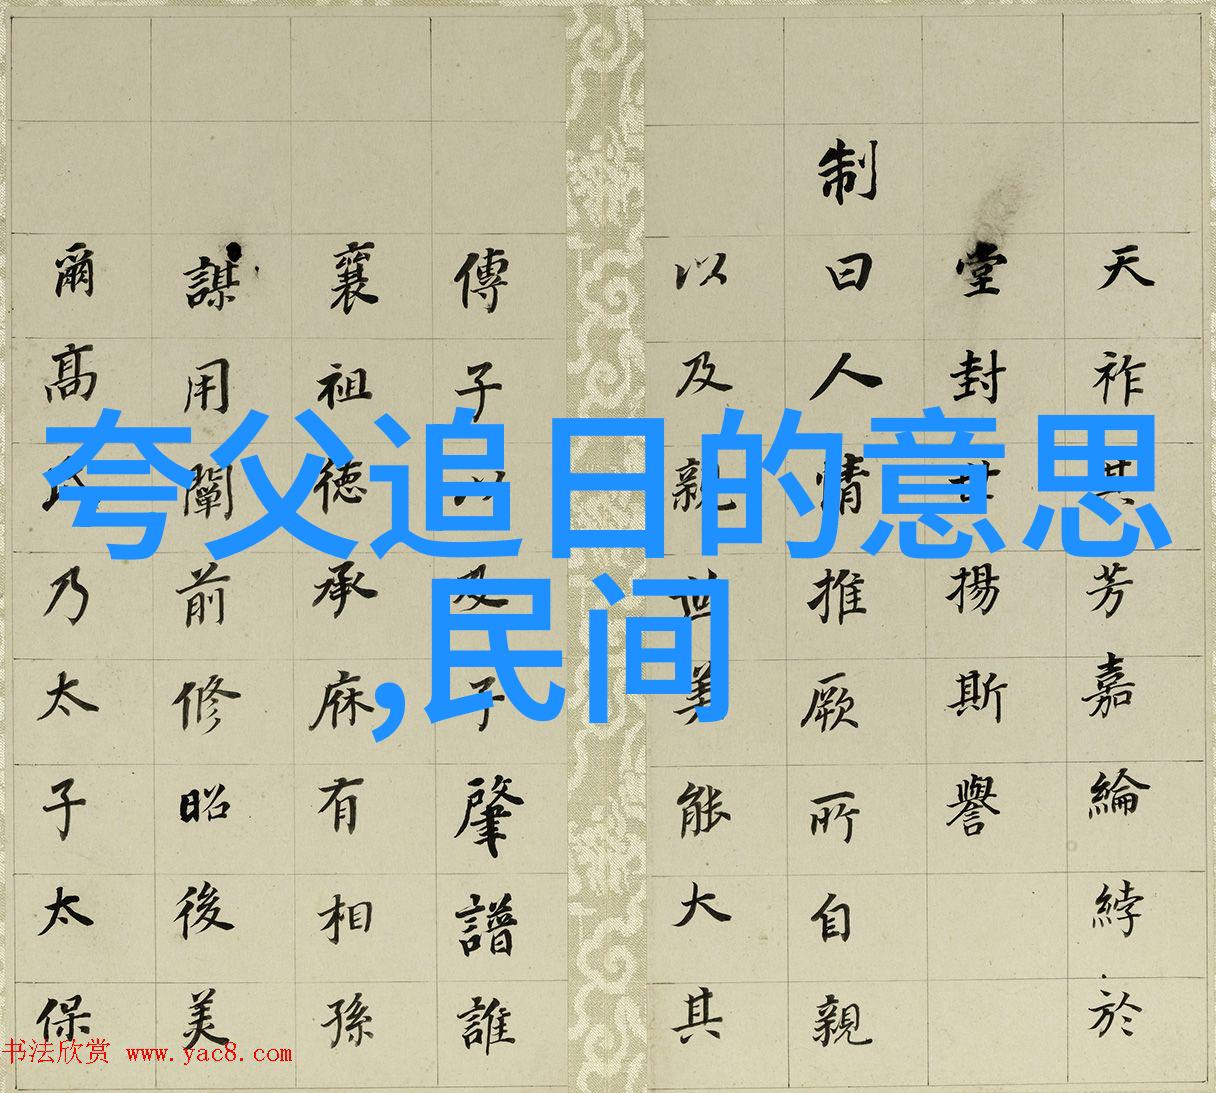 夸父追日的意思
,民间
天祚其芳嘉綸綍於
堂封世揚斯譽
制曰人情推厥所自親
以及親世美能大其
傳子以及子肇譜誰
襄祖德承庥有相孫
謀用闡前修昭後美
爾高氏乃太子太保
书法欣赏 www.yac8.com